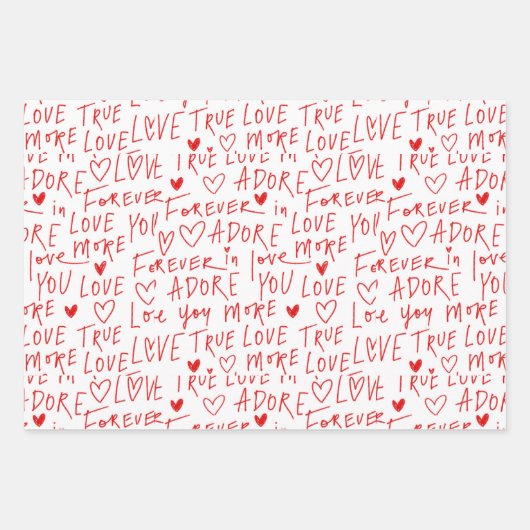 LOVE TRUE LOVE TRUE LOVE TRUE LOVE TRUE LOVE
MORE LOVE MORE LOVE MORE
LOVE TRUE LOVE in LOVE TRUE LOVE in
ADORE ADORE ADORE
FOREVER FOREVER in FOREVER in
in LOVE YOU LOVE YOU
ADORE MORE ADORE MORE ADORE
love FOREVER in love FOREVER in
YOU LOVE ADORE YOU LOVE ADORE YOU
Loe you more Loe you more
LOVE TRUE LOVE TRUE LOVE TRUE LOVE TRUE LOVE
MORE LOVE MORE LOVE MORE
LOVE TRUE LOVE in LOVE TRUE LOVE in
ADORE ADORE ADORE
FOREVER FOREVER FOREVER